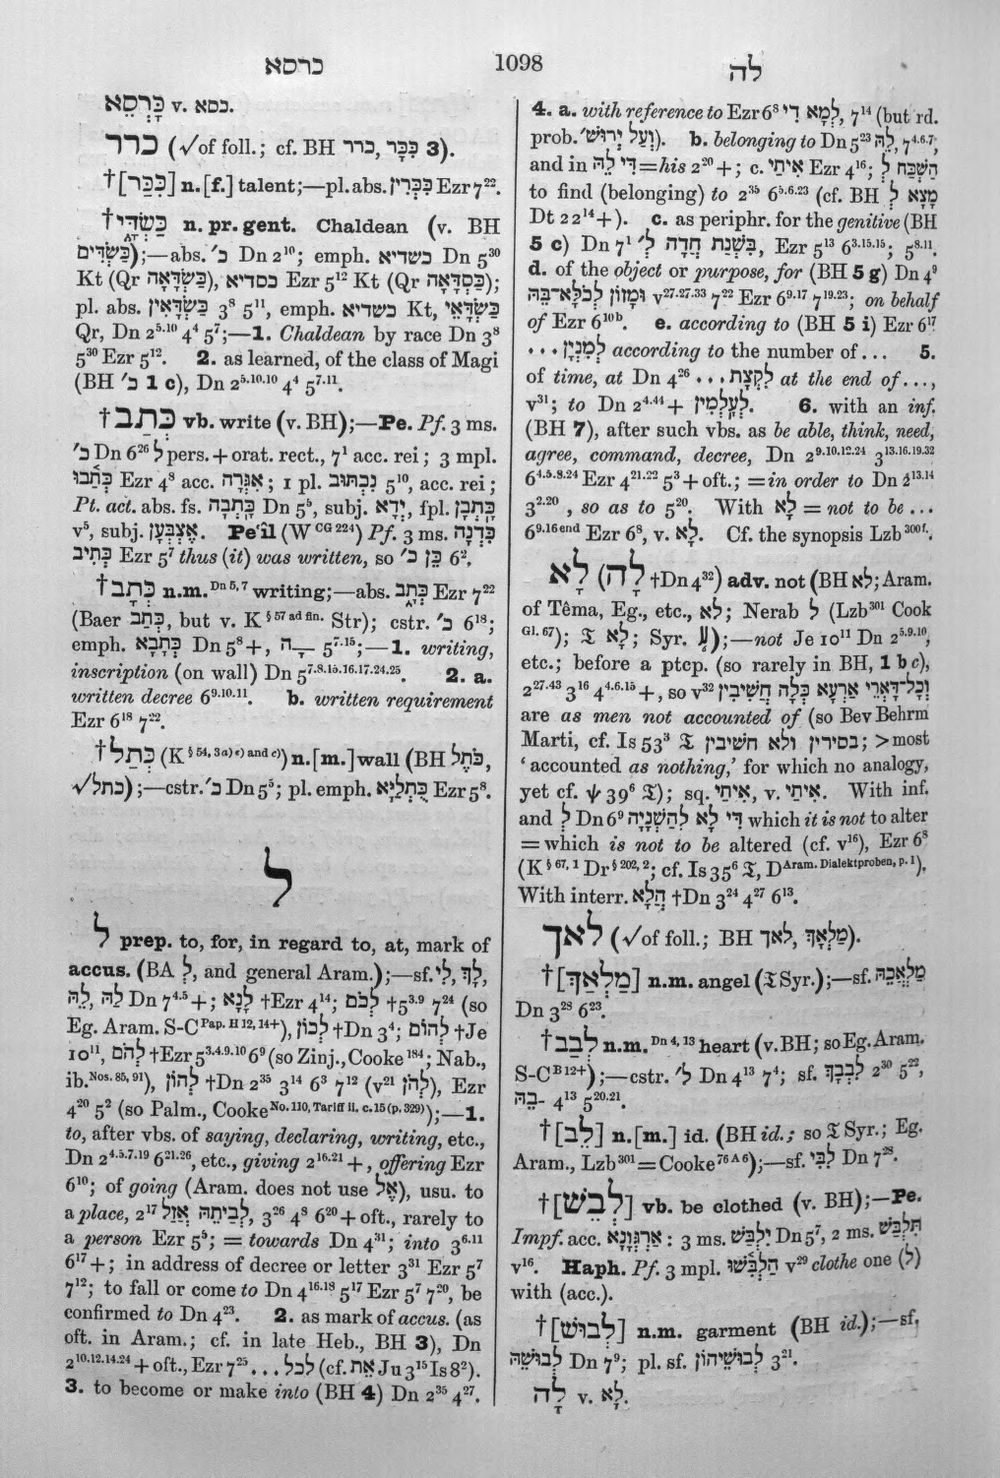 כרסא 1098 לה
כָּרְסֵא v. כסא.
כרר (√of foll.; cf. BH כרר, כִּכָּר 3).
†[כַּכַּר] n.[f.] talent;—pl.abs. כַּכְּרִין Ezr 7²².
†כַּשְׂדָּי n. pr. gent. Chaldean (v. BH
כַּשְׂדִּים);—abs. כ׳ Dn 2¹⁰; emph. כשדיא Dn 5³⁰
Kt (Qr כַּשְׂדָּאָה), כסדיא Ezr 5¹² Kt (Qr כַּסְדָּאָה);
pl. abs. כַּשְׂדָּאִין 3⁸ 5¹¹, emph. כשדיא Kt, כַּשְׂדָּאֵי
Qr, Dn 2⁵·¹⁰ 4⁴ 5⁷;—1. Chaldean by race Dn 3⁸
5³⁰ Ezr 5¹². 2. as learned, of the class of Magi
(BH כ׳ 1 c), Dn 2⁵·¹⁰·¹⁰ 4⁴ 5⁷·¹¹.
†כְּתַב vb. write (v. BH);—Pe. Pf. 3 ms.
כ׳ Dn 6²⁶ ל pers. + orat. rect., 7¹ acc. rei; 3 mpl.
כְּתַבוּ Ezr 4⁸ acc. אִגְּרָה; 1 pl. נִכְתּוּב 5¹⁰, acc. rei;
Pt. act. abs. fs. כָּתְבָה Dn 5⁵, subj. יְדָא, fpl. כָּתְבָן
v⁵, subj. אֶצְבְּעָן. Pe‘îl (W CG 224) Pf. 3 ms. כִּדְנָה
כְּתִיב Ezr 5⁷ thus (it) was written, so כֵּן כ׳ 6².
†כְּתָב n.m. Dn 5, 7 writing;—abs. כְּתָב Ezr 7²²
(Baer כְּתַב, but v. K § 57 ad fin. Str); cstr. כ׳ 6¹⁸;
emph. כְּתָבָא Dn 5⁸+, ־ָה 5⁷·¹⁵;—1. writing,
inscription (on wall) Dn 5⁷·⁸·¹⁵·¹⁶·¹⁷·²⁴·²⁵. 2. a.
written decree 6⁹·¹⁰·¹¹. b. written requirement
Ezr 6¹⁸ 7²².
†כְּתַל (K § 54, 3 a) ε) and c)) n.[m.] wall (BH כֹּתֶל,
√כתל);—cstr. כ׳ Dn 5⁵; pl. emph. כֻּתְלַיָּא Ezr 5⁸.
ל
ל prep. to, for, in regard to, at, mark of
accus. (BA לְ, and general Aram.);—sf. לִי, לָךְ,
לֵהּ, לַהּ Dn 7⁴·⁵+; לָנָא †Ezr 4¹⁴; לְכֹם †5³·⁹ 7²⁴ (so
Eg. Aram. S-C Pap. H 12, 14+), לְכוֹן †Dn 3⁴; לְהוֹם †Je
10¹¹, לְהֹם †Ezr 5³·⁴·⁹·¹⁰ 6⁹ (so Zinj., Cooke¹⁸⁴; Nab.,
ib. Nos. 85, 91), לְהוֹן †Dn 2³⁵ 3¹⁴ 6³ 7¹² (v²¹ לְהֹן), Ezr
4²⁰ 5² (so Palm., Cooke No. 110, Tariff ii. c. 15 (p. 329));—1.
to, after vbs. of saying, declaring, writing, etc.,
Dn 2⁴·⁵·⁷·¹⁹ 6²¹·²⁶, etc., giving 2¹⁶·²¹+, offering Ezr
6¹⁰; of going (Aram. does not use אֶל), usu. to
a place, 2¹⁷ לְבַיְתֵהּ אֲזַל, 3²⁶ 4⁸ 6²⁰ + oft., rarely to
a person Ezr 5⁵; = towards Dn 4³¹; into 3⁶·¹¹
6¹⁷+; in address of decree or letter 3³¹ Ezr 5⁷
7¹²; to fall or come to Dn 4¹⁶·¹⁸ 5¹⁷ Ezr 5⁷ 7²⁰, be
confirmed to Dn 4²³. 2. as mark of accus. (as
oft. in Aram.; cf. in late Heb., BH 3), Dn
2¹⁰·¹²·¹⁴·²⁴ + oft., Ezr 7²⁵ ... לכל (cf. אֶת Ju 3¹⁵ Is 8²).
3. to become or make into (BH 4) Dn 2³⁵ 4²⁷.
4. a. with reference to Ezr 6⁸ לְמָא דִי, 7¹⁴ (but rd.
prob. וְעַל יְרוּשׁ׳). b. belonging to Dn 5²³ לֵהּ, 7⁴·⁶·⁷,
and in דִּי לֵהּ=his 2²⁰+; c. אִיתַי Ezr 4¹⁶; הִשְׁכַּח לְ
to find (belonging) to 2³⁵ 6⁵·⁶·²³ (cf. BH מָצָא לְ
Dt 22¹⁴+). c. as periphr. for the genitive (BH
5 c) Dn 7¹ בִּשְׁנַת חֲדָה לְ׳, Ezr 5¹³ 6³·¹⁵·¹⁵; 5⁸·¹¹.
d. of the object or purpose, for (BH 5 g) Dn 4⁹
וּמָזוֹן לְכֹלָּא־בֵהּ v²⁷·²⁷·³³ 7²² Ezr 6⁹·¹⁷ 7¹⁹·²³; on behalf
of Ezr 6¹⁰ᵇ. e. according to (BH 5 i) Ezr 6¹⁷
לְמִנְיָן ... according to the number of ... 5.
of time, at Dn 4²⁶ לִקְצָת ... at the end of ...,
v³¹; to Dn 2⁴·⁴⁴+ לְעָלְמִין. 6. with an inf.
(BH 7), after such vbs. as be able, think, need,
agree, command, decree, Dn 2⁹·¹⁰·¹²·²⁴ 3¹³·¹⁶·¹⁹·³²
6⁴·⁵·⁸·²⁴ Ezr 4²¹·²² 5³ + oft.; = in order to Dn 2¹³·¹⁴
3²·²⁰, so as to 5²⁰. With לָא = not to be ...
6⁹·¹⁶ ᵉⁿᵈ Ezr 6⁸, v. לָא. Cf. the synopsis Lzb 300 f.
לָא (לָה †Dn 4³²) adv. not (BH לא; Aram.
of Têma, Eg., etc., לא; Nerab ל (Lzb³⁰¹ Cook
Gl. 67); 𝔗 לָא; Syr. ܠܳܐ);—not Je 10¹¹ Dn 2⁵·⁹·¹⁰,
etc.; before a ptcp. (so rarely in BH, 1 b c),
2²⁷·⁴³ 3¹⁶ 4⁴·⁶·¹⁵+, so v³² וְכָל־דָּאְרֵי אַרְעָא כְּלָה חֲשִׁיבִין
are as men not accounted of (so Bev Behrm
Marti, cf. Is 53³ 𝔗 בסירין ולא חשיבין; >most
‘accounted as nothing,’ for which no analogy,
yet cf. ψ 39⁶ 𝔗); sq. אִיתַי, v. אִיתַי. With inf.
and לְ Dn 6⁹ דִּי לָא לְהַשְׁנָיָה which it is not to alter
= which is not to be altered (cf. v¹⁶), Ezr 6⁸
(K § 67, 1 Dr § 202, 2; cf. Is 35⁶ 𝔗, D Aram. Dialektproben, p. 1).
With interr. הֲלָא †Dn 3²⁴ 4²⁷ 6¹³.
לאך (√of foll.; BH לאך, מַלְאָךְ).
†[מַלְאַךְ] n.m. angel (𝔗 Syr.);—sf. מַלְאֲכֵהּ
Dn 3²⁸ 6²³.
†לְבַב n.m. Dn 4, 13 heart (v. BH; so Eg. Aram.
S-C B 12+);—cstr. ל׳ Dn 4¹³ 7⁴; sf. לִבְבָךְ 2³⁰ 5²²,
־בֵהּ 4¹³ 5²⁰·²¹.
†[לֵב] n.[m.] id. (BH id.; so 𝔗 Syr.; Eg.
Aram., Lzb³⁰¹=Cooke 76 A 6);—sf. לִבִּי Dn 7²⁸.
†[לְבֵשׁ] vb. be clothed (v. BH);—Pe.
Impf. acc. אַרְגְּוָנָא: 3 ms. יִלְבַּשׁ Dn 5⁷, 2 ms. תִּלְבַּשׁ
v¹⁶. Haph. Pf. 3 mpl. הַלְבִּשׁוּ v²⁹ clothe one (לְ)
with (acc.).
†[לְבוּשׁ] n.m. garment (BH id.);—sf.
לְבוּשֵׁהּ Dn 7⁹; pl. sf. לְבוּשֵׁיהוֹן 3²¹.
לָה v. לָא.